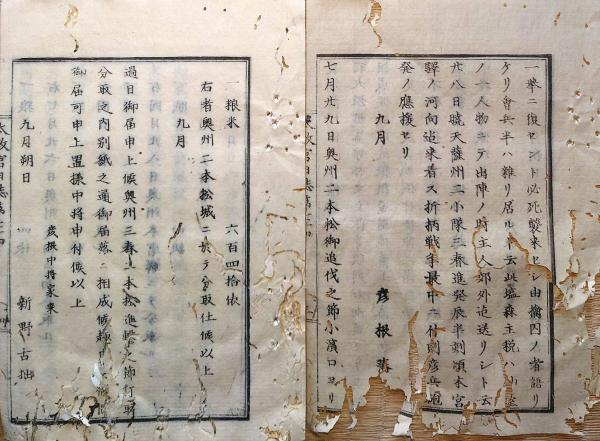 一擧ニ復セント必死襲来セシ由擒囚ノ者語リ
ケリ會兵半ハ雜リ居ルト云此塩森主税ハ
ノ一人物ニテ出陣ノ時主人郊外迠送リシト云
廿八日暁天薩州二小隊三春進発辰半刻頃本宮
驛ノ河向迠来着ス折柄戰争最中ニ付則彦兵
発ノ應援セリ
九月
彦根藩
七月廿九日奥州二本松御追伐之節小濱口ヨリ
一粮米 六百四拾俵
右者奥州二本松城ニ於テ分取仕候以上
九月
過日御届申上候奥州三春二本松進撃之節打取
分取之内別紙之通御届落ニ相成候趣
御届可申上置様中将申付候以上
彦根中将家来
九月朔日 新野古拙
太政官日誌第